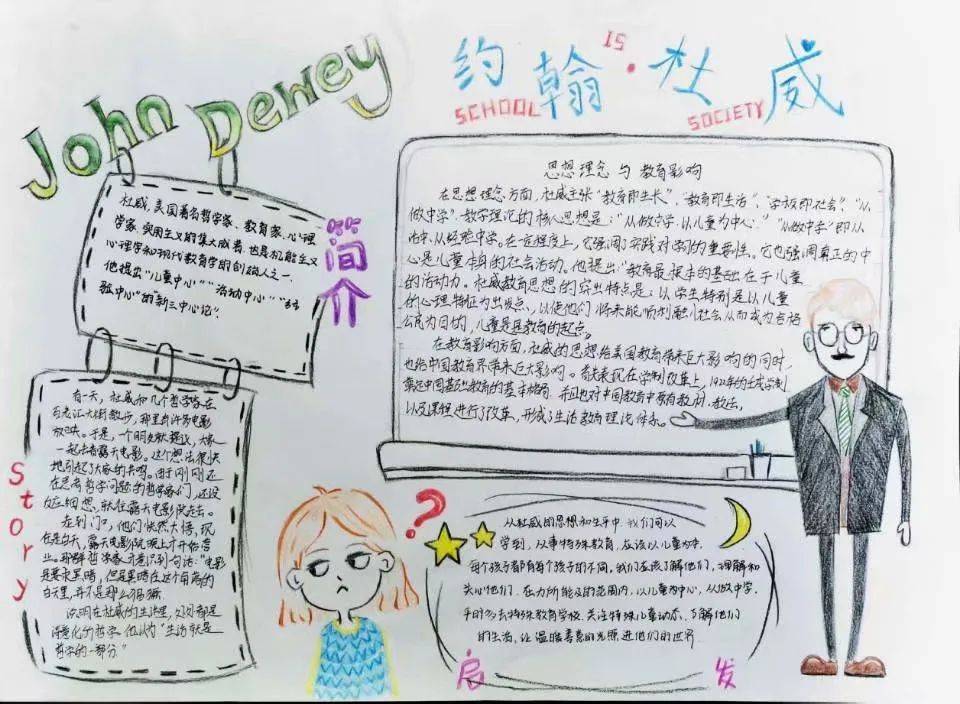 John Dewey
约翰·杜威
SCHOOL
IS
SOCIETY
简介
杜威,美国著名哲学家、教育家、心理
学家,实用主义的集大成者,也是机能主义
心理学和现代教育学的创始人之一。
他提出"儿童中心""活动中心""经
验中心"的新三中心论。
思想理念与教育影响
在思想理念方面,杜威主张"教育即生长","教育即生活","学校即社会","从
做中学".教学理论的核心思想是:"从做中学,以儿童为中心.""从做中学"即从
活中、从经验中学。在一定程度上,它强调了实践对学习的重要性。它也强调真正的中
心是儿童本身的社会活动。他提出:"教育最根本的基础在于儿童
的活动力。杜威教育思想的突出特点是:以学生特别是以儿童
的心理特征为出发点,以使他们将来能顺利融入社会从而成为合格
公民为目的,儿童是是教育的起点。
在教育影响方面,杜威的思想给美国教育带来巨大影响的同时,
也给中国教育界带来巨大影响。首先表现在学制改革上,1922年的壬戌学制
奠定中国基础教育的基本格局,并且也对中国教育中原有教材、教法,
以及课程进行了改革,形成了生活教育理论体系。
Story
有一天,杜威和几个哲学家在
大街散步,那里有许多电影
放映。于是,一个朋友就提议,大家
一起去看露天电影。这个想法很快
地引起了大家的共鸣。由于刚刚还
在思考哲学问题的哲学家们,还没
仔细想,就往露天电影院走去。
在到门口,他们恍然大悟,现
在是白天,露天电影院晚上才开始营
业。哲学家才意识到一句话:"电影
是要求黑暗,但是黑暗在这个角落的
白天里,并不是那么
说明在杜威的生活里,处处都是
哲学,他认为"生活就是
哲学的一部分"
?
从杜威的思想和生平中,我们可以
学到,从事特殊教育,应该以儿童为中.
每个孩子都有每个孩子的不同,我们应该了解他们,理解和
关心他们。在力所能及的范围内,以儿童为中心,从做中学.
平时多去特殊教育学校,关注特殊儿童动态,了解他们
的生活,让温暖善意的光照进他们的世界
启发